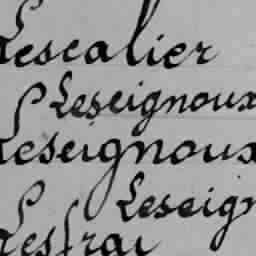 Lescalier
Leseignoux
Leseignoux
Leseign
Lesfrai